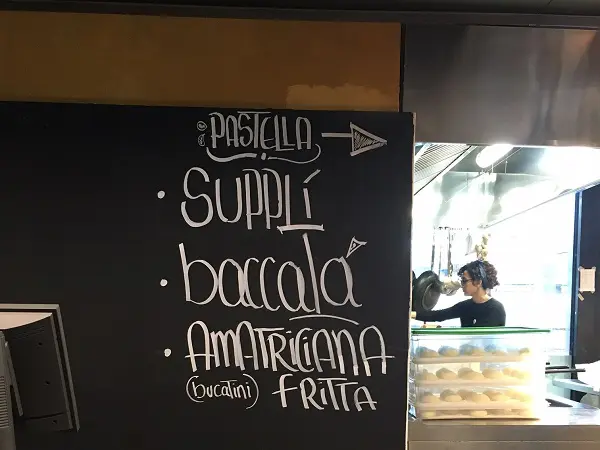 PASTELLA
• SUPPLÍ
baccalá
• AMATRICIANA
(bucatini) FRITTA